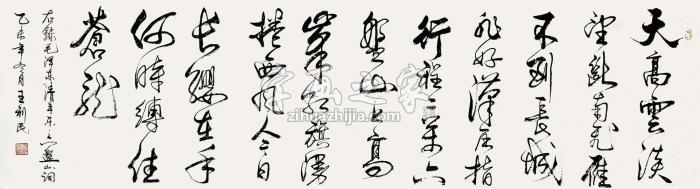 天高雲淡
望斷南飛雁
不到長城
非好漢屈指
行程二萬六
盤山上高
峰紅旗漫
捲西風今日
長纓在手
何時縛住
蒼龍
右錄毛澤東清平樏之六盤山詞
乙未年冬月王民
字画之家
zihuazhijia.com